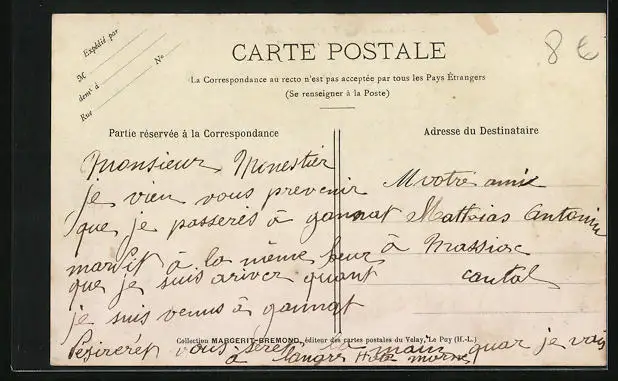 8 €
Expédié par
M
demt à
No
Rue
CARTE POSTALE
La Correspondance au recto n'est pas acceptée par tous les Pays Étrangers
(Se renseigner à la Poste)
Partie réservée à la Correspondance
Monsieur Monestier
je vien vous prevenir
que je passerès à gannat
mardit à la même heur
que je suis ariver quant
je suis venus à gannat
vous serer la main quar je vais
à Langre Hte marne
Adresse du Destinataire
votre ami
Mathias Antonin
à Massiac
cantal
Collection MARGERIT-BREMOND, éditeur des cartes postales du Velay, Le Puy (H.-L.)